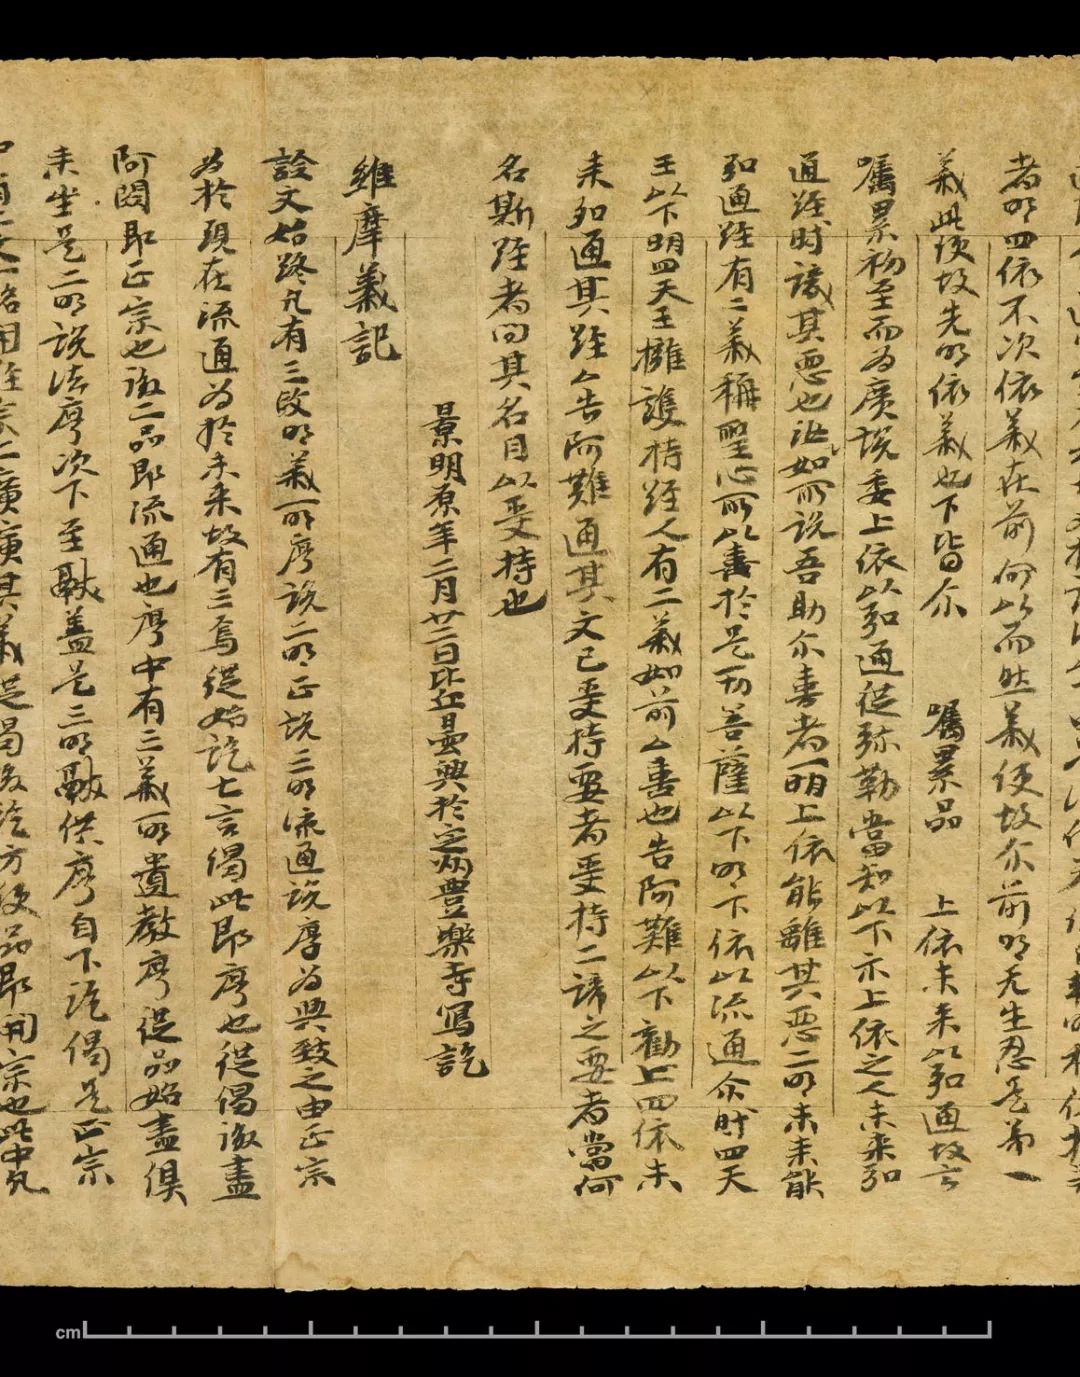 者明四依不次依義在前何以而然義使故尒前明无生忍是第一
義此使故先明依義也下皆尒　囑累品　上依未来以弘通故言
囑累初至而為廣说委上依以弘通従弥勒當知以下亦上依之人未来弘
通経時讓其悪也汝如所説吾助尒喜者一明上依能離其悪二明未来能
弘通経有二義稱聖心所以喜於是一切菩薩以下明下依以流通尒時四天
王以下明四天王擁護持経人有二義如前亼喜也告阿難以下勸上四依未
来弘通其経亼告阿難通其文已受持要者受持二諦之要者當何
名斯経者问其名目以受持也
景明原年二月廿二日比丘曇興於定州豊樂寺寫訖
維摩義記
詮文始終凡有三段明義一明序説二明正説三明流通説序為興致之由正宗
為於現在流通為於未来故有三焉従始訖七言偈此即序也従偈後盡
阿閦即正宗也後二品即流通也序中有三義一明遺教序従品始盡俱
来坐是二明説法序次下至獻盖是三明獻供序自下訖偈是正宗